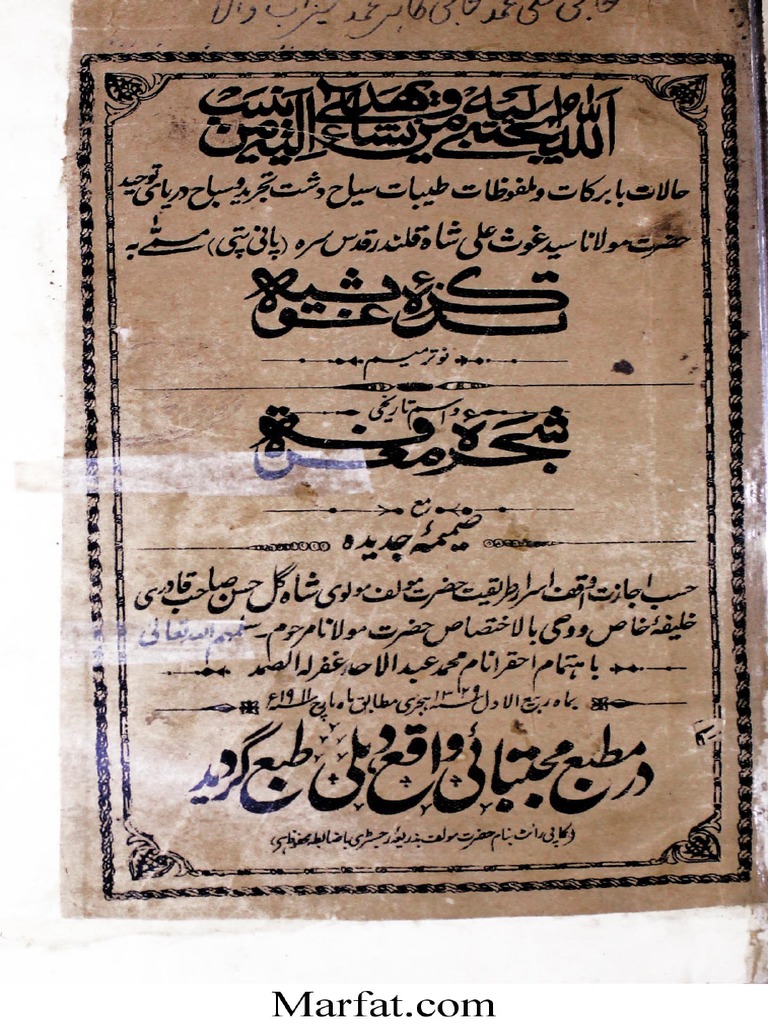 حاجی محمد حاجی محمد والا
اللّٰہُ یَجْتَبِیْٓ اِلَیْہِ مَنْ یَّشَآءُ وَیَھْدِیْٓ اِلَیْہِ مَنْ یُّنِیْبُ
حالات بابرکات وملفوظات طیبات سیاح دشت تجرید وسباح دریای توحید
حضرت مولانا سید غوث علی شاہ قلندر قدس سرہ (پانی پتی) مسمّٰے بہ
تذکرۂ غوثیہ
نو ترمیم
واسم تاریخی
شجرۂ معرفة
مع
ضمیمۂ جدیدہ
حسب اجازت واقف اسرار طریقیت حضرت مولف مولوی شاہ گل حسن صاحب قادری
خلیفۂ خاص ووصی بالاختصاص حضرت مولانا مرحوم۔ سلمہم اللہ تعالی
باہتمام احقر انام محمد عبدالاحد غفرلہ الصمد
بماہ ربیع الاول ۱۳۲۹ سنہ ہجری مطابق ماہ مارچ سنہ ۱۹۱۱ء
در مطبع مجتبائی واقع دہلی طبع گردید
(کاپی رائٹ بنام حضرت مولف بذریعۂ رجسٹری باضابطہ محفوظ ہی)
Marfat.com